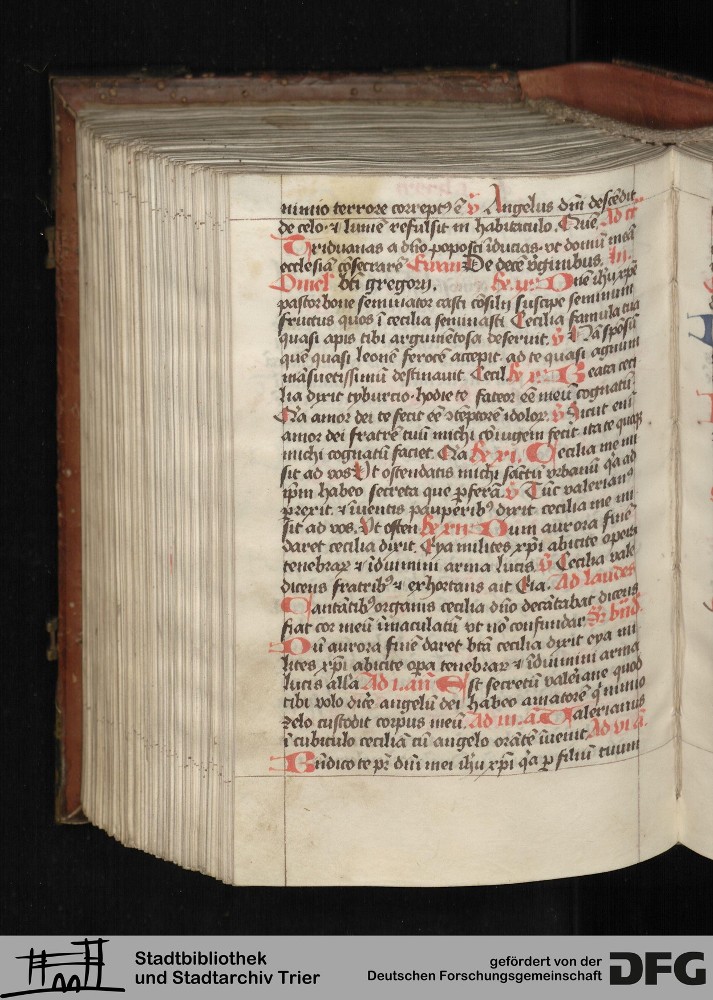 nimio terrore correptꝰ ē v̄ Angelus dn̄i descēdit
de celo · ⁊ lumē refulsit in habitaculo . Quē . Ad ct̄
Triduanas a dn̄o poposci īducias · vt domū meā
ecclesiā cōsecrarē Ewan De decē v̄ginibus . In
Omel bt̄i gregorij . Re ix Dn̄e ih̄u xp̄e
pastor bone seminator casti cōsilij suscipe seminum
fructus quos ī cecilia seminasti Cecilia famula tua
quasi apis tibi argumētosa deseruit . v̄ Nā spōsū
quē quasi leonē ferocē accepit · ad te quasi agnum
māsuetissimū destinauit Cecil Re x Beata ceci
lia dixit tyburcio · hodie te fateor eē meū cognatū
Qr̄a amor dei te fecit eē ↄteptorē idolor v̄ Sicut em̄
amor dei fratrē tuū michi cōiugem fecit · ita te quoqꝫ
michi cognatū faciet . Qr̄a Re xi . Cecilia me mi
sit ad vos Vt ostendatis michi sāctū vrbanū qr̄ ad
ip̄m habeo secreta que ꝓferā . v̄ Tūc valerianꝰ
ꝑrexit · ⁊ īuentis pauperibꝰ dixit · cecilia me mi
sit ad vos . Vt osten Re xii Dum aurora finē
daret cecilia dixit . Eya milites xp̄i abicite opera
tenebraꝝ ⁊ īduimini arma lucis . v̄ Cecilia vale
dicens fratribꝰ ⁊ exhortans ait Eia . Ad laudes
Cantātibꝰ organis cecilia dn̄o decātabat dicens
fiat cor meū īmaculatū vt nō confundar Sr̄ bn̄d .
Dū aurora finē daret bt̄a cecilia dixit eya mi
lites xp̄i abicite opa tenebraꝝ ⁊ īduimini arma
lucis all̄a Ad i . an̄ Est secretū valeriane quod
tibi volo dic̄e angelū dei habeo amatorē qͥ nimio
zelo custodit corpus meū . Ad iii . a Valerianus
ī cubiculo ceciliā cū angelo orātē īuenit . Ad vi a .
Bn̄dico te pr̄ dn̄i mei ih̄u xp̄i qr̄a ꝑ filiū tuum
Stadtbibliothek
und Stadtarchiv Trier
gefördert von der
Deutschen Forschungsgemeinschaft
DFG